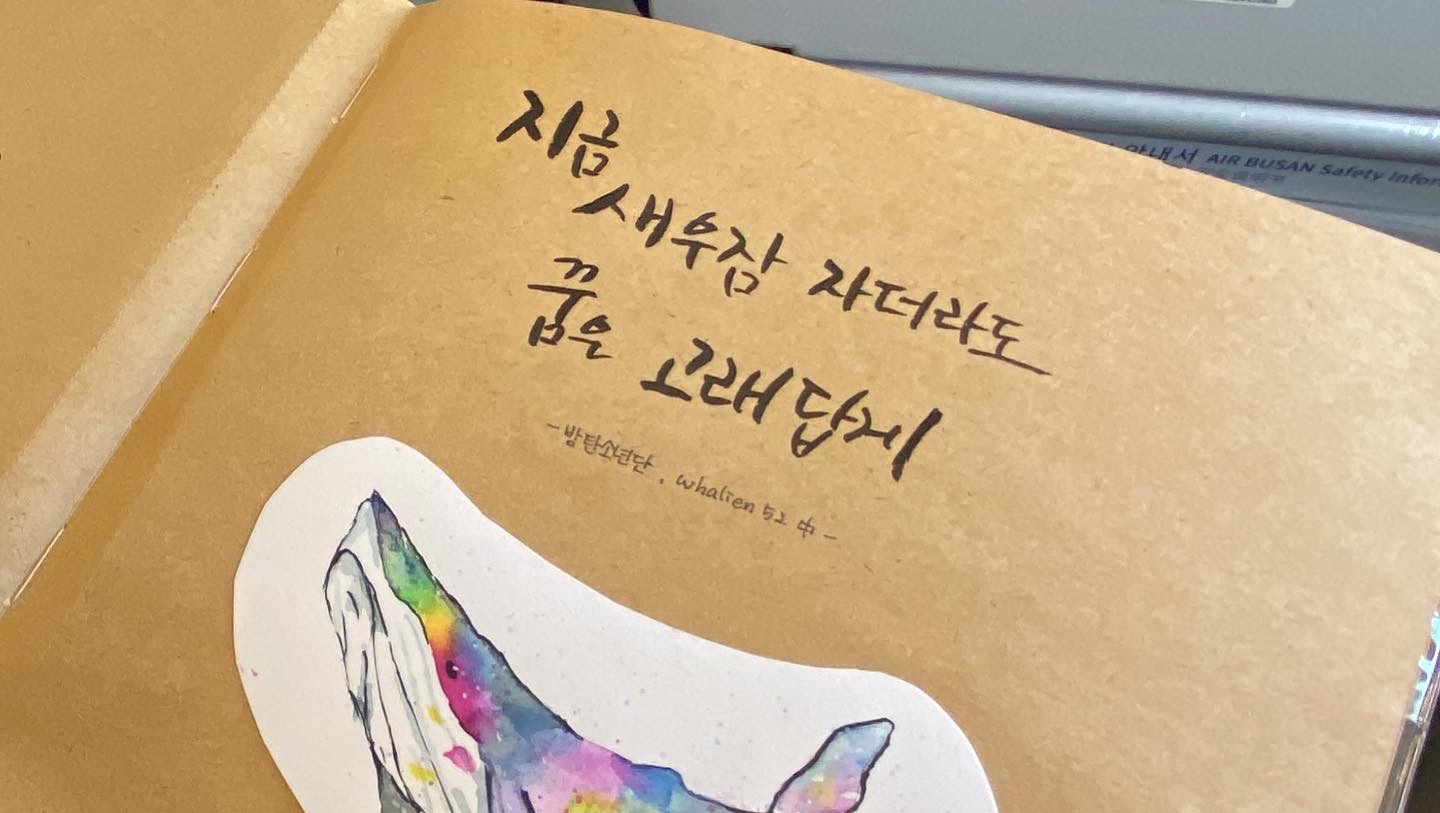 지금
새우잠 자더라도
꿈은 고래답게
-방탄소년단, whalien 52 中-
안내서 AIR BUSAN Safety